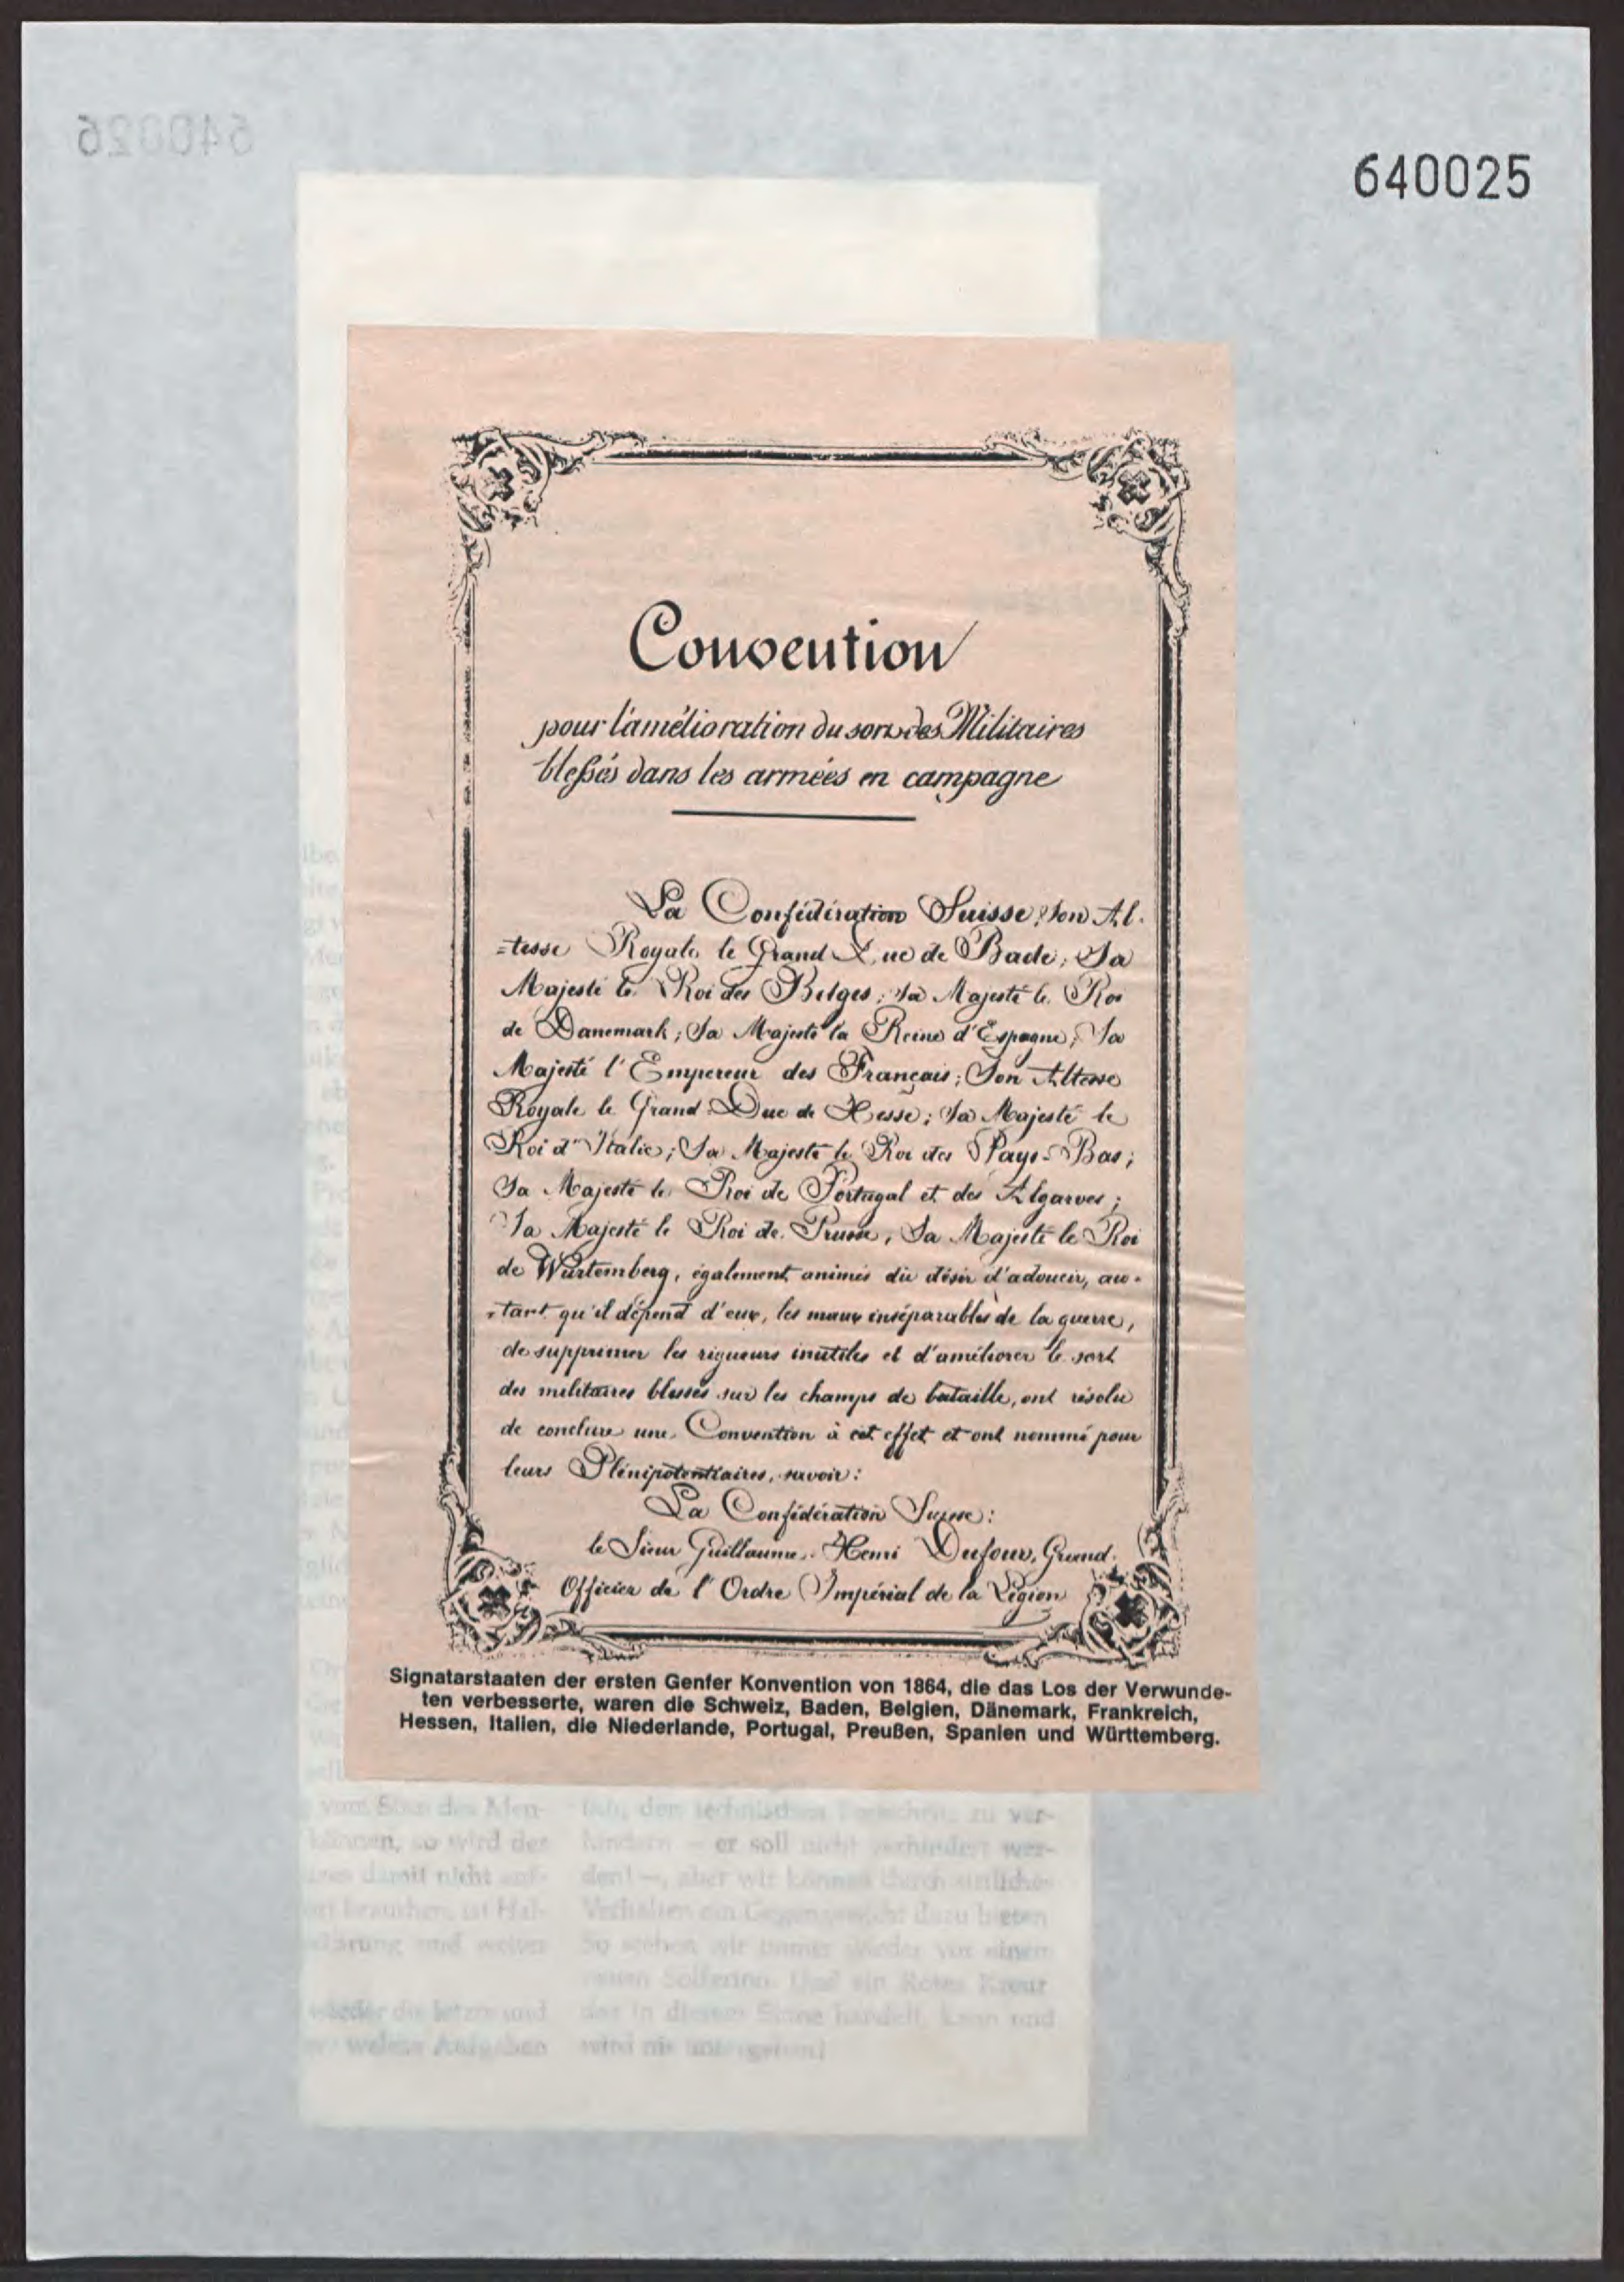 640025
Convention
pour l'amélioration du sort des Militaires
blessés dans les armées en campagne
La Confédération Suisse; Son Al-
-tesse Royale le Grand Duc de Bade; Sa
Majesté le Roi des Belges; Sa Majesté le Roi
de Danemark; Sa Majesté la Reine d'Espagne; Sa
Majesté l'Empereur des Français; Son Altesse
Royale le Grand Duc de Hesse; Sa Majesté le
Roi d'Italie; Sa Majesté le Roi des Pays-Bas;
Sa Majesté le Roi de Portugal et des Algarves;
Sa Majesté le Roi de Prusse, Sa Majesté le Roi
de Wurtemberg, également animés du désir d'adoucir, au-
-tant qu'il dépend d'eux, les maux inséparables de la guerre,
de supprimer les rigueurs inutiles et d'améliorer le sort
des militaires blessés sur les champs de bataille, ont résolu
de conclure une Convention à cet effet et ont nommé pour
leurs Plénipotentiaires, savoir:
La Confédération Suisse:
le Sieur Guillaume-Henri Dufour, Grand
Officier de l'Ordre Impérial de la Légion
Signatarstaaten der ersten Genfer Konvention von 1864, die das Los der Verwunde-
ten verbesserte, waren die Schweiz, Baden, Belgien, Dänemark, Frankreich,
Hessen, Italien, die Niederlande, Portugal, Preußen, Spanien und Württemberg.